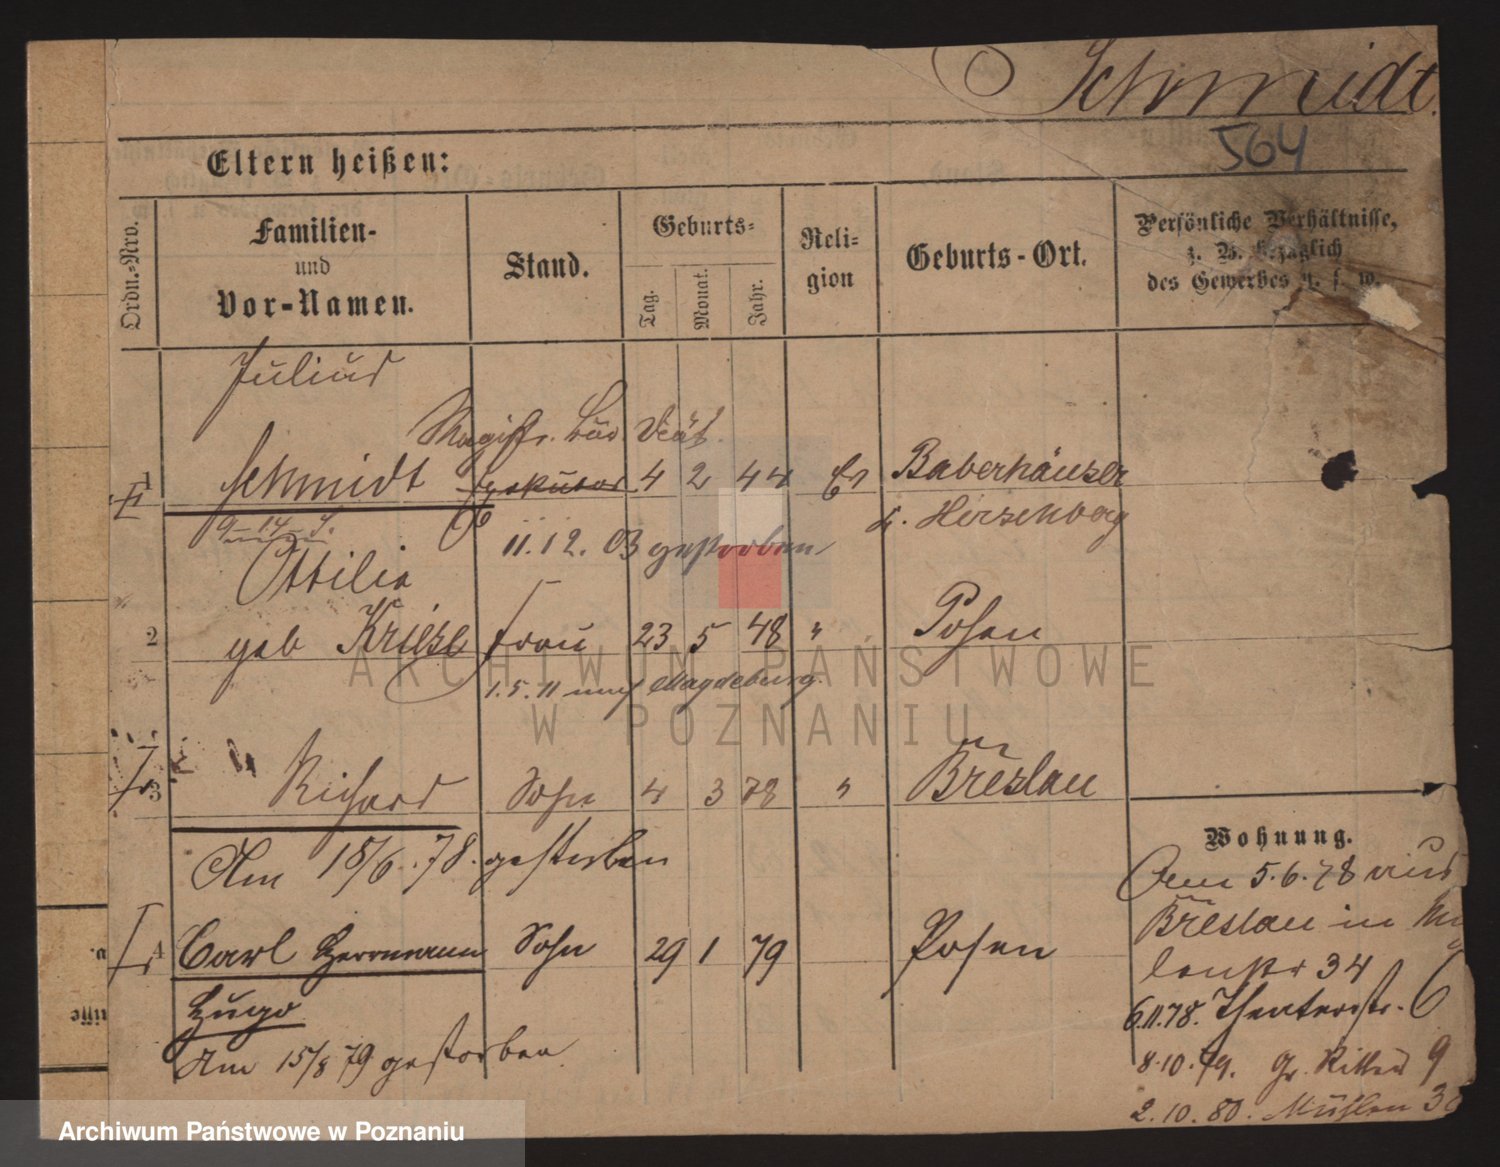 Schmidt.
564
Eltern heißen:
Ordn.-Nro.
Familien-
und
Vor-Namen.
Stand.
Geburts-
Tag.
Monat.
Jahr.
Reli-
gion
Geburts-Ort.
Persönliche Verhältnisse,
z. B. bezüglich
des Gewerbes u. s. w.
Julius
Magistr. Diät.
1 Schmidt 4 2 44 Ev Baberhäuser
11.12.03 gestorben b. Hirschberg
Ottilie
2 geb Frau 23 5 48 " Posen
1.5.11 nach Magdeburg.
3 Richard Sohn 4 3 78 " Breslau
Am 18/6.78. gestorben
4 Carl Herrmann Sohn 29 1 79 Posen
Hugo
Am 15/8 79 gestorben
Wohnung.
5.6.78 aus
Breslau in
34
6.11.78. Theaterstr. 6
8.10.79. Gr. Ritter 9
2.10.80. Mühlen
ARCHIWUM PAŃSTWOWE
W POZNANIU
Archiwum Państwowe w Poznaniu